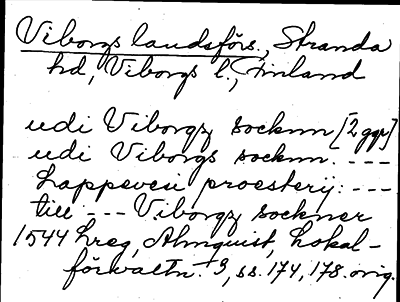 Viborgs landsförs., Stranda
hd, Viborgs l., Finland
udi Viborgz socknn [2 ggr]
udi Viborgs socknn. ---
Lappevesi proesterij: ---
till --- Viborgz sockner
1544 hreg, Almquist, Lokal-
förvaltn. 3, ss. 174, 178. orig.